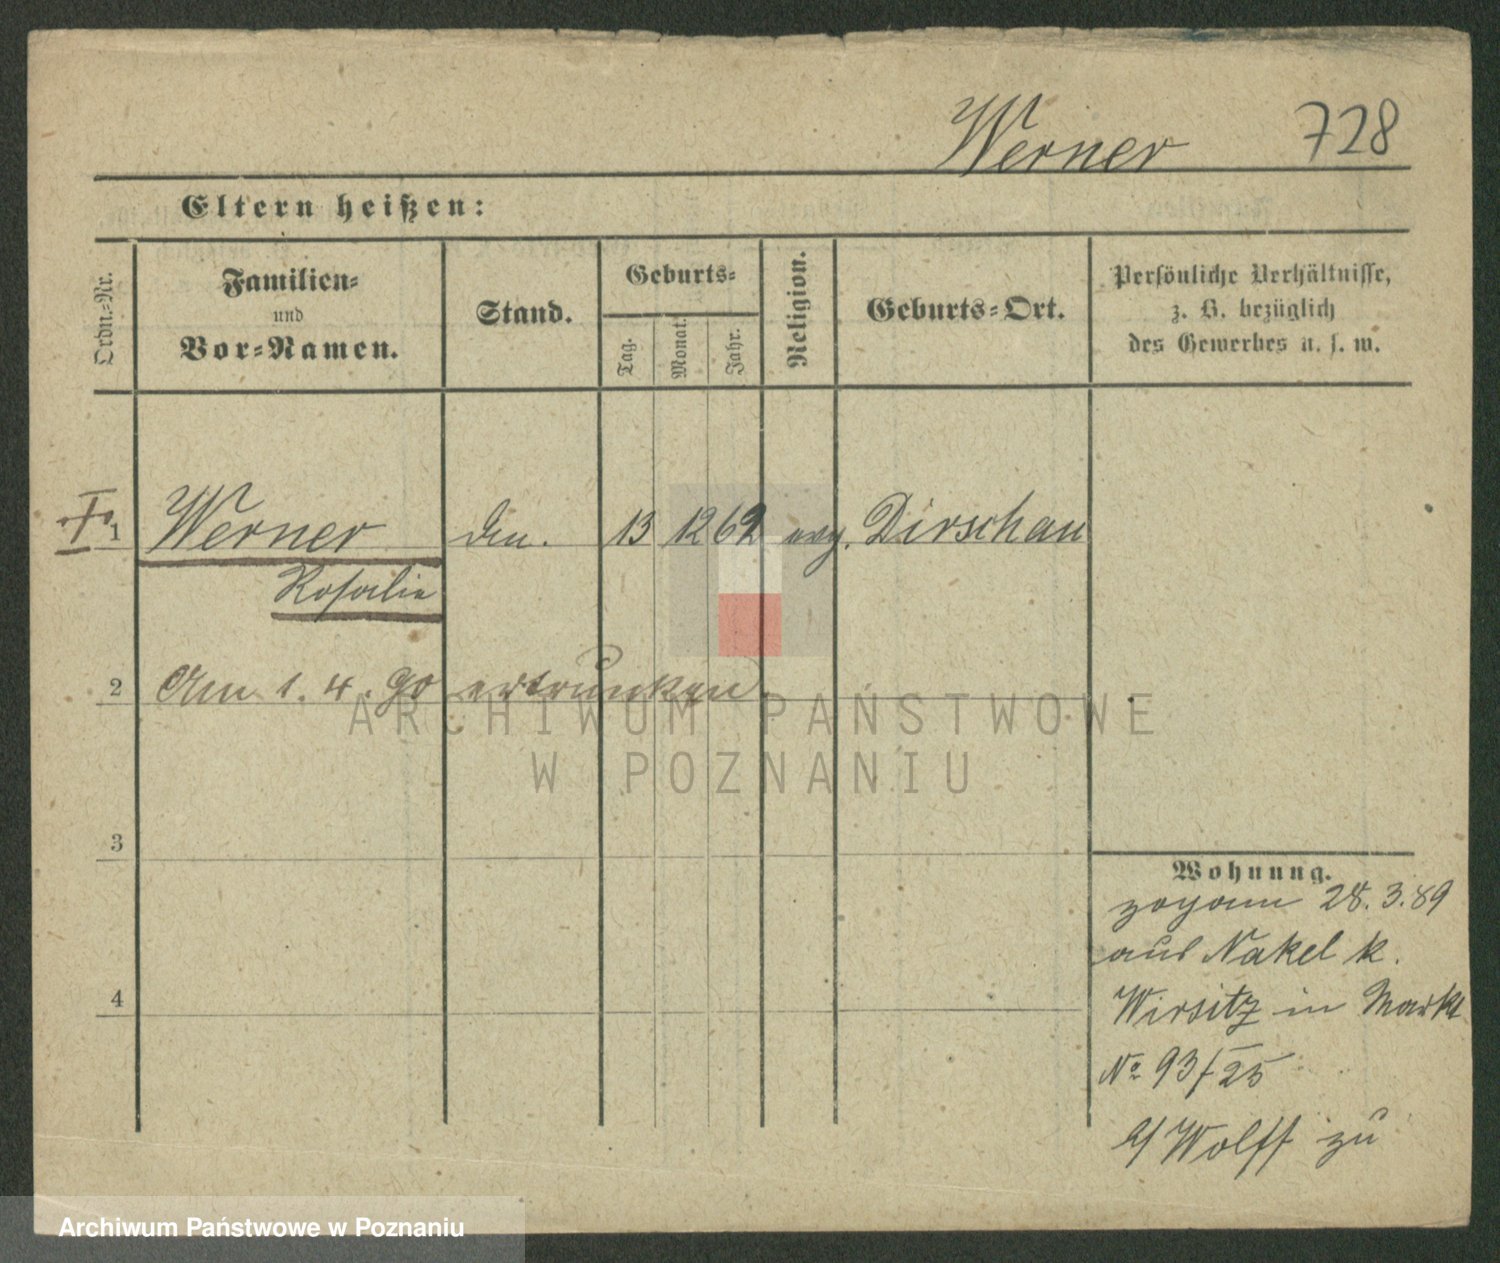 Werner 728
Eltern heißen:
Ordn.-Nr.
Familien-
und
Vor-Namen.
Stand.
Geburts-
Tag.
Monat.
Jahr.
Religion.
Geburts-Ort.
Persönliche Verhältnisse,
z. B. bezüglich
des Gewerbes u. s. w.
1 Werner 13 12 62 evg. Dirschau
Rosalie
2 Am 1. 4. 90 ertrunken
ARCHIWUM PAŃSTWOWE
W POZNANIU
3
Wohnung.
zogann 28. 3. 89
aus Nakel k.
4
Wirsitz in Markt
No 93/25
b/ Wolff zu
Archiwum Państwowe w Poznaniu